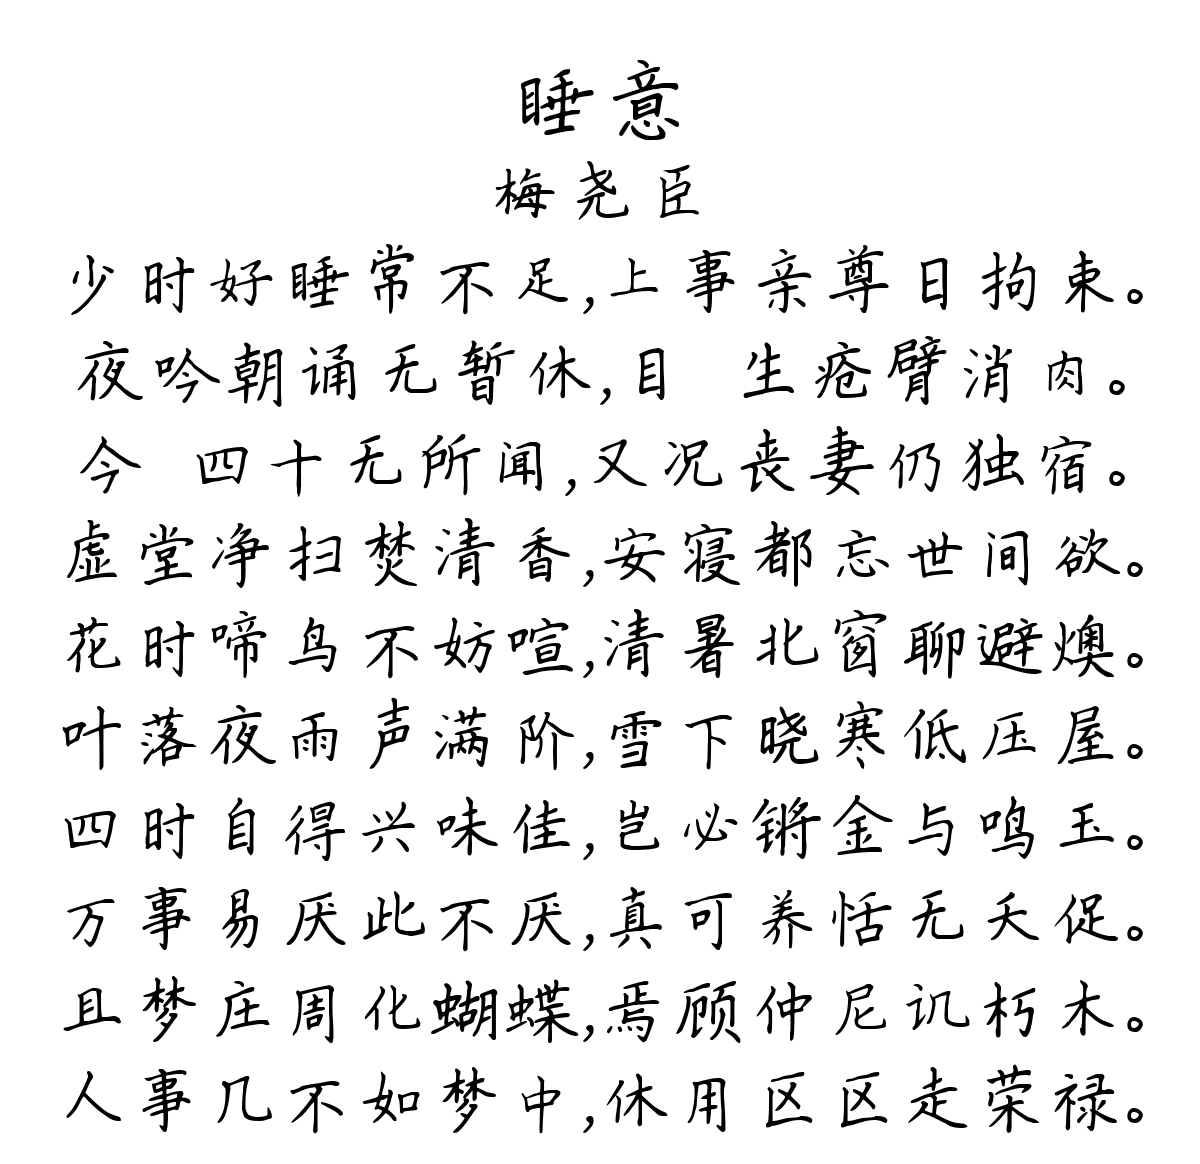 睡意
梅尧臣
少时好睡常不足,上事亲尊日拘束。
夜吟朝诵无暂休,目 生疮臂消肉。
今 四十无所闻,又况丧妻仍独宿。
虚堂净扫焚清香,安寝都忘世间欲。
花时啼鸟不妨喧,清暑北窗聊避燠。
叶落夜雨声满阶,雪下晓寒低压屋。
四时自得兴味佳,岂必锵金与鸣玉。
万事易厌此不厌,真可养恬无夭促。
且梦庄周化蝴蝶,焉顾仲尼讥朽木。
人事几不如梦中,休用区区走荣禄。